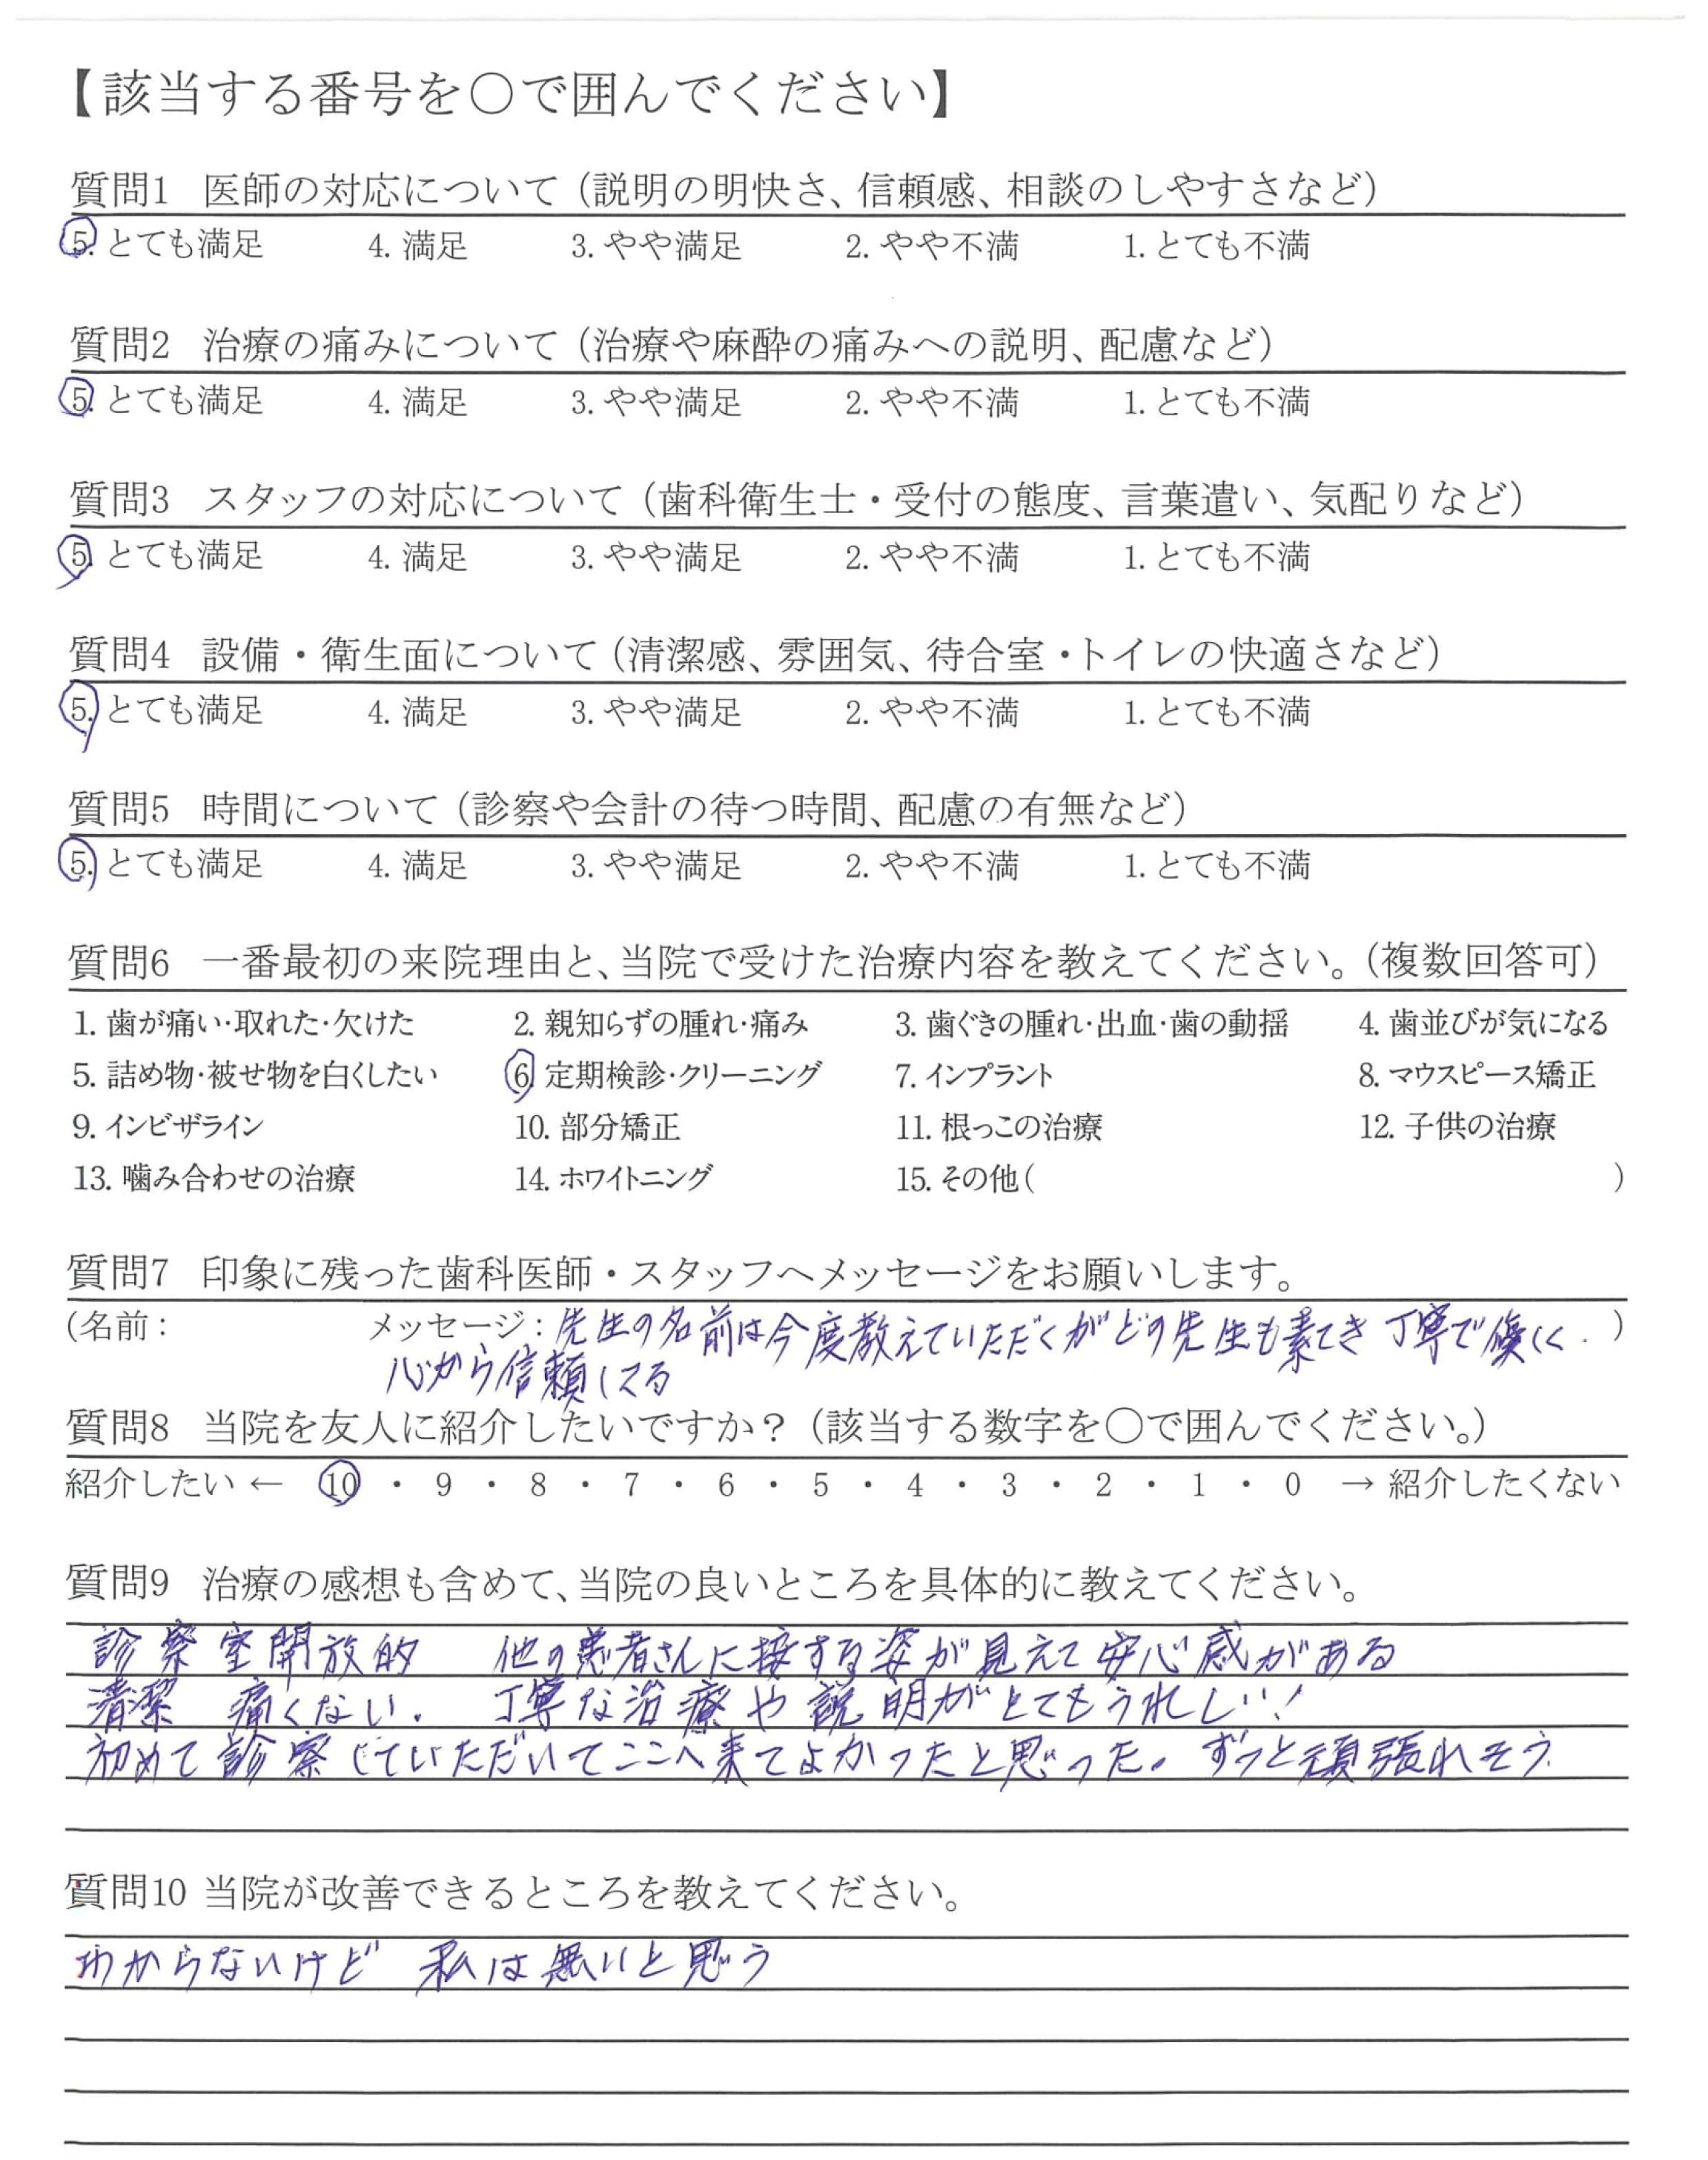 【該当する番号を○で囲んでください】
質問1 医師の対応について（説明の明快さ、信頼感、相談のしやすさなど）
5. とても満足 4. 満足 3. やや満足 2. やや不満 1. とても不満
質問2 治療の痛みについて（治療や麻酔の痛みへの説明、配慮など）
5. とても満足 4. 満足 3. やや満足 2. やや不満 1. とても不満
質問3 スタッフの対応について（歯科衛生士・受付の態度、言葉遣い、気配りなど）
5. とても満足 4. 満足 3. やや満足 2. やや不満 1. とても不満
質問4 設備・衛生面について（清潔感、雰囲気、待合室・トイレの快適さなど）
5. とても満足 4. 満足 3. やや満足 2. やや不満 1. とても不満
質問5 時間について（診察や会計の待つ時間、配慮の有無など）
5. とても満足 4. 満足 3. やや満足 2. やや不満 1. とても不満
質問6 一番最初の来院理由と、当院で受けた治療内容を教えてください。（複数回答可）
1. 歯が痛い・取れた・欠けた 2. 親知らずの腫れ・痛み 3. 歯ぐきの腫れ・出血・歯の動揺 4. 歯並びが気になる
5. 詰め物・被せ物を白くしたい 6. 定期検診・クリーニング 7. インプラント 8. マウスピース矯正
9. インビザライン 10. 部分矯正 11. 根っこの治療 12. 子供の治療
13. 噛み合わせの治療 14. ホワイトニング 15. その他（ ）
質問7 印象に残った歯科医師・スタッフへメッセージをお願いします。
(名前： メッセージ：先生の名前は今度教えていただくがどの先生も素てき 丁寧で優しく. ）
心から信頼してる
質問8 当院を友人に紹介したいですか？（該当する数字を○で囲んでください。）
紹介したい ← 10 ・ 9 ・ 8 ・ 7 ・ 6 ・ 5 ・ 4 ・ 3 ・ 2 ・ 1 ・ 0 → 紹介したくない
質問9 治療の感想も含めて、当院の良いところを具体的に教えてください。
診察室開放的 他の患者さんに接する姿が見えて安心感がある
清潔 痛くない. 丁寧な治療や説明がとてもうれしい!
初めて診察していただいてここへ来てよかったと思った。ずっと頑張れそう.
質問10 当院が改善できるところを教えてください。
わからないけど 私は無いと思う